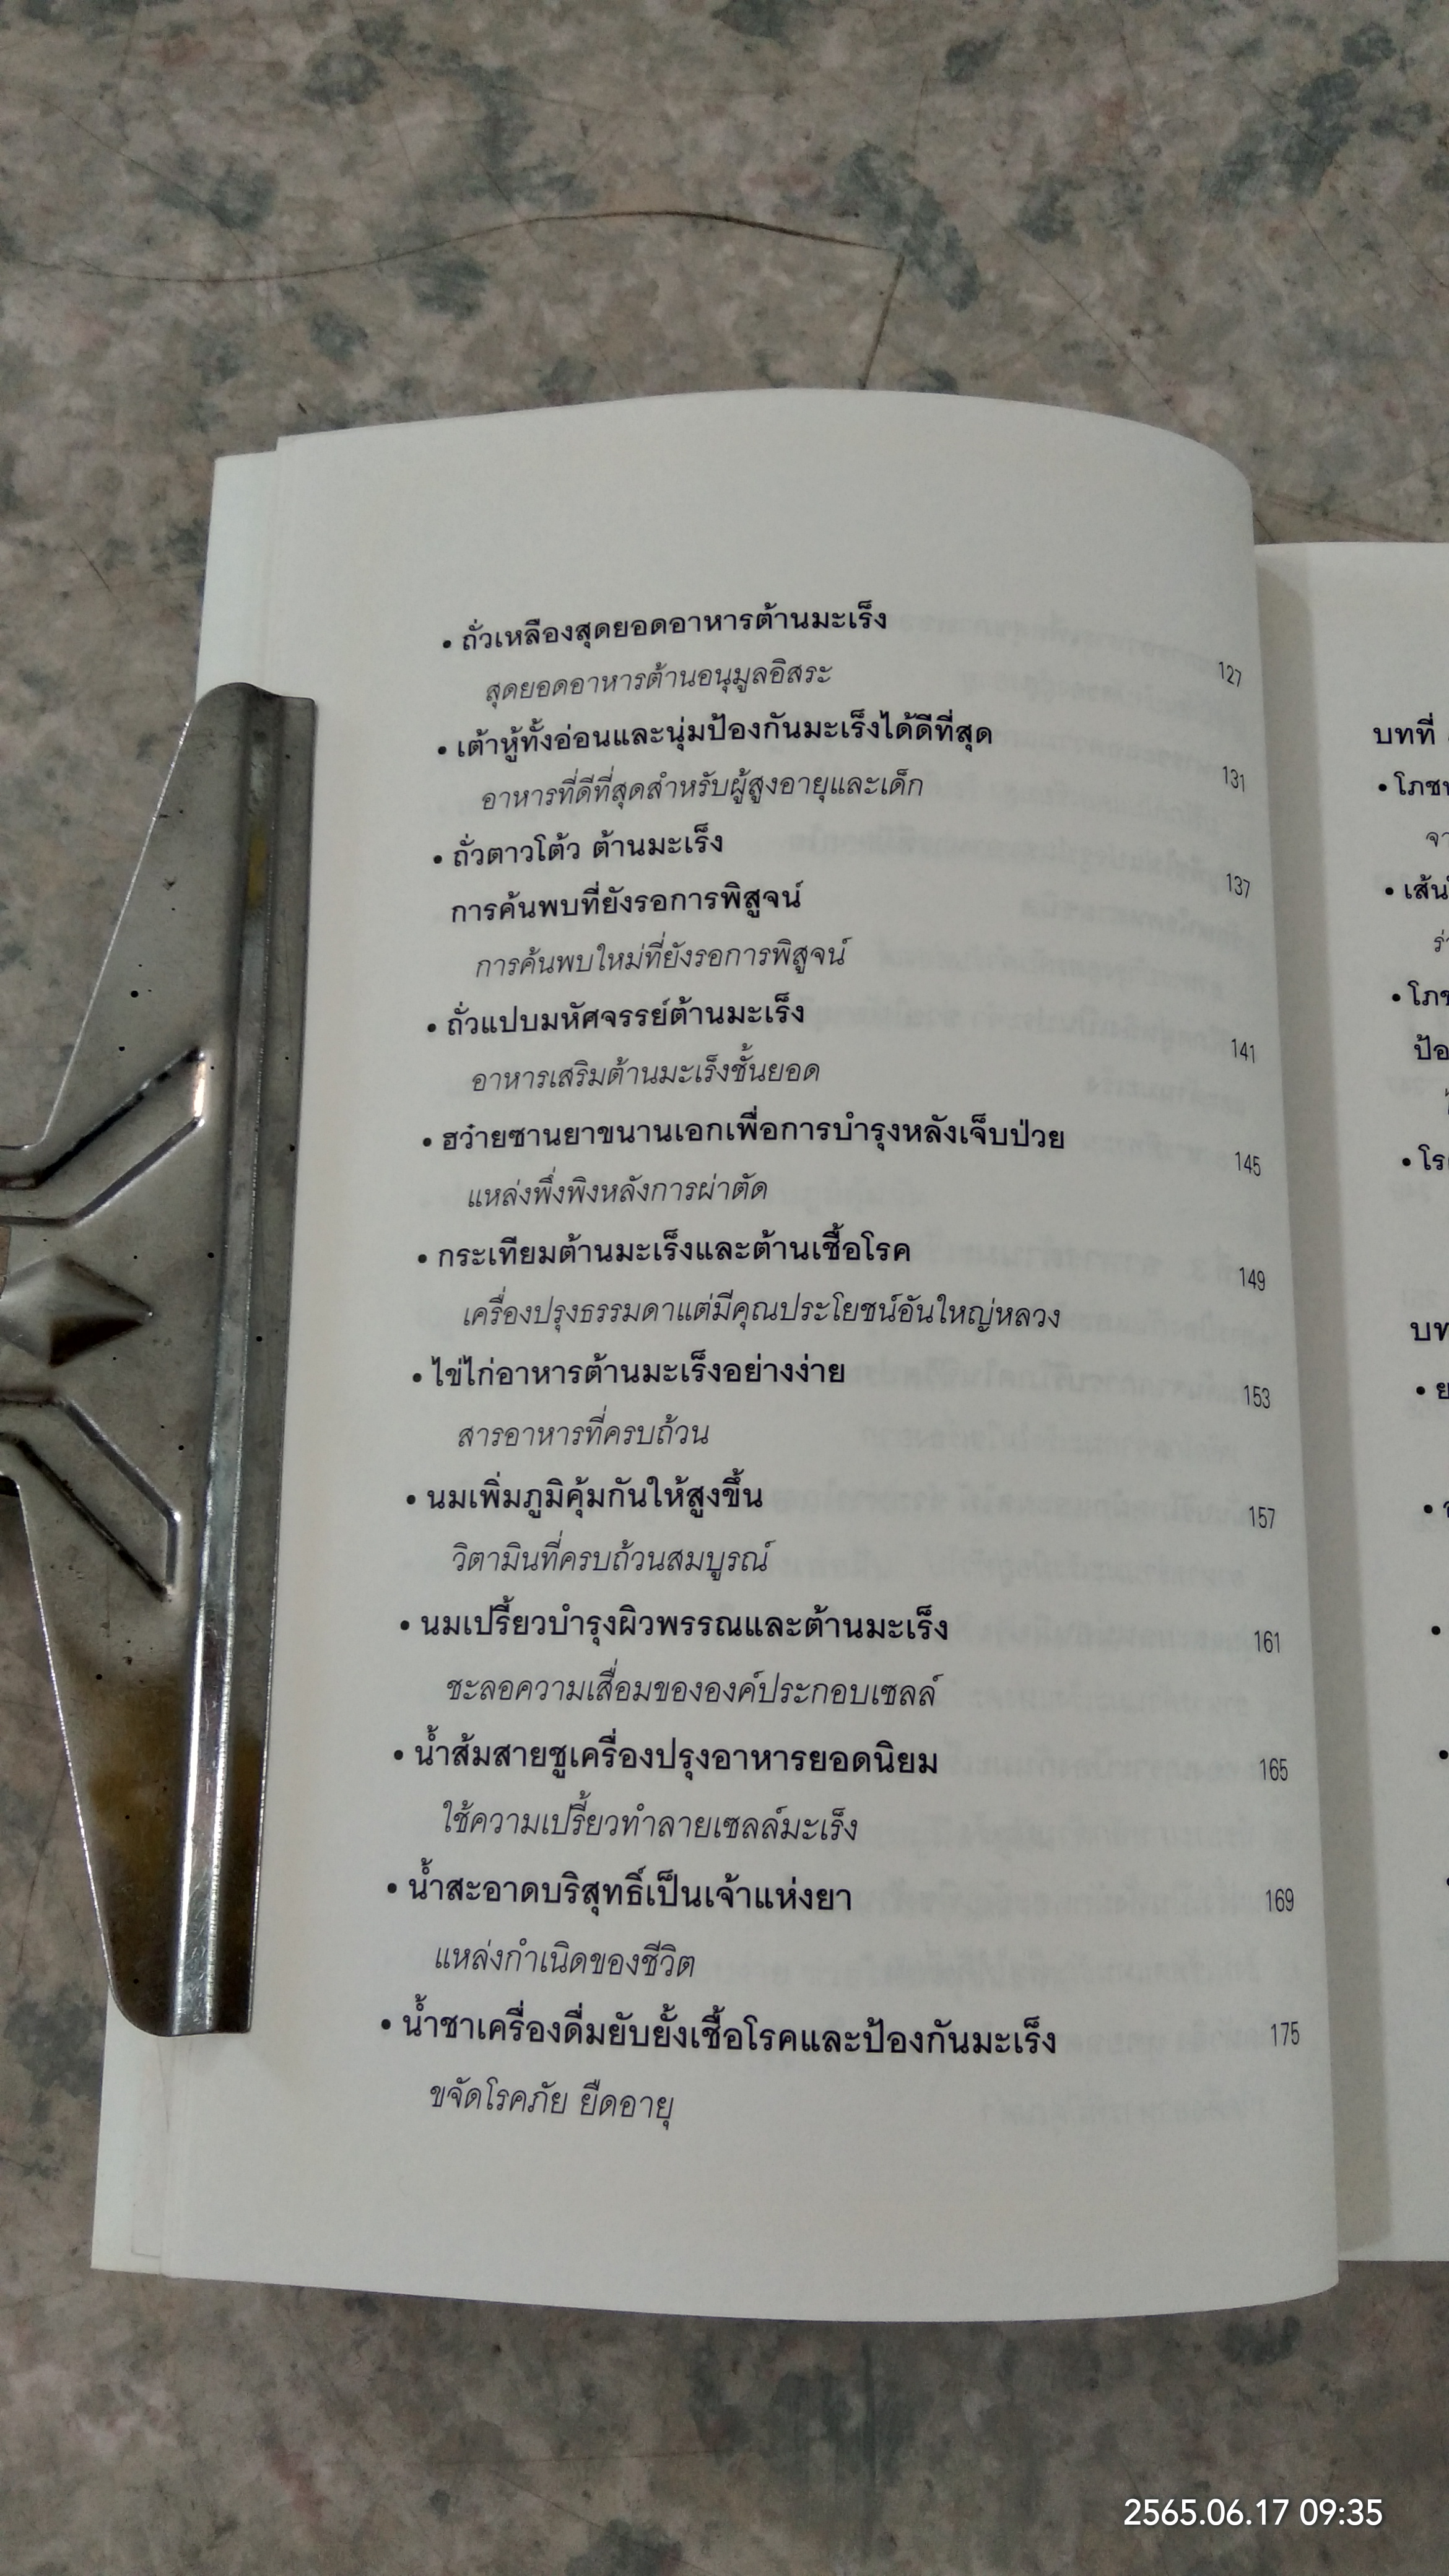 • ถั่วเหลืองสุดยอดอาหารต้านมะเร็ง 127
สุดยอดอาหารต้านอนุมูลอิสระ
• เต้าหู้ทั้งอ่อนและนุ่มป้องกันมะเร็งได้ดีที่สุด 131
อาหารที่ดีที่สุดสำหรับผู้สูงอายุและเด็ก
• ถั่วตาวโต้ว ต้านมะเร็ง 137
การค้นพบที่ยังรอการพิสูจน์
การค้นพบใหม่ที่ยังรอการพิสูจน์
• ถั่วแปบมหัศจรรย์ต้านมะเร็ง 141
อาหารเสริมต้านมะเร็งชั้นยอด
• ฮว๋ายซานยาขนานเอกเพื่อการบำรุงหลังเจ็บป่วย 145
แหล่งพึ่งพิงหลังการผ่าตัด
• กระเทียมต้านมะเร็งและต้านเชื้อโรค 149
เครื่องปรุงธรรมดาแต่มีคุณประโยชน์อันใหญ่หลวง
• ไข่ไก่อาหารต้านมะเร็งอย่างง่าย 153
สารอาหารที่ครบถ้วน
• นมเพิ่มภูมิคุ้มกันให้สูงขึ้น 157
วิตามินที่ครบถ้วนสมบูรณ์
• นมเปรี้ยวบำรุงผิวพรรณและต้านมะเร็ง 161
ชะลอความเสื่อมขององค์ประกอบเซลล์
• น้ำส้มสายชูเครื่องปรุงอาหารยอดนิยม 165
ใช้ความเปรี้ยวทำลายเซลล์มะเร็ง
• น้ำสะอาดบริสุทธิ์เป็นเจ้าแห่งยา 169
แหล่งกำเนิดของชีวิต
• น้ำชาเครื่องดื่มยับยั้งเชื้อโรคและป้องกันมะเร็ง 175
ขจัดโรคภัย ยืดอายุ
บทที่
2565.06.17 09:35